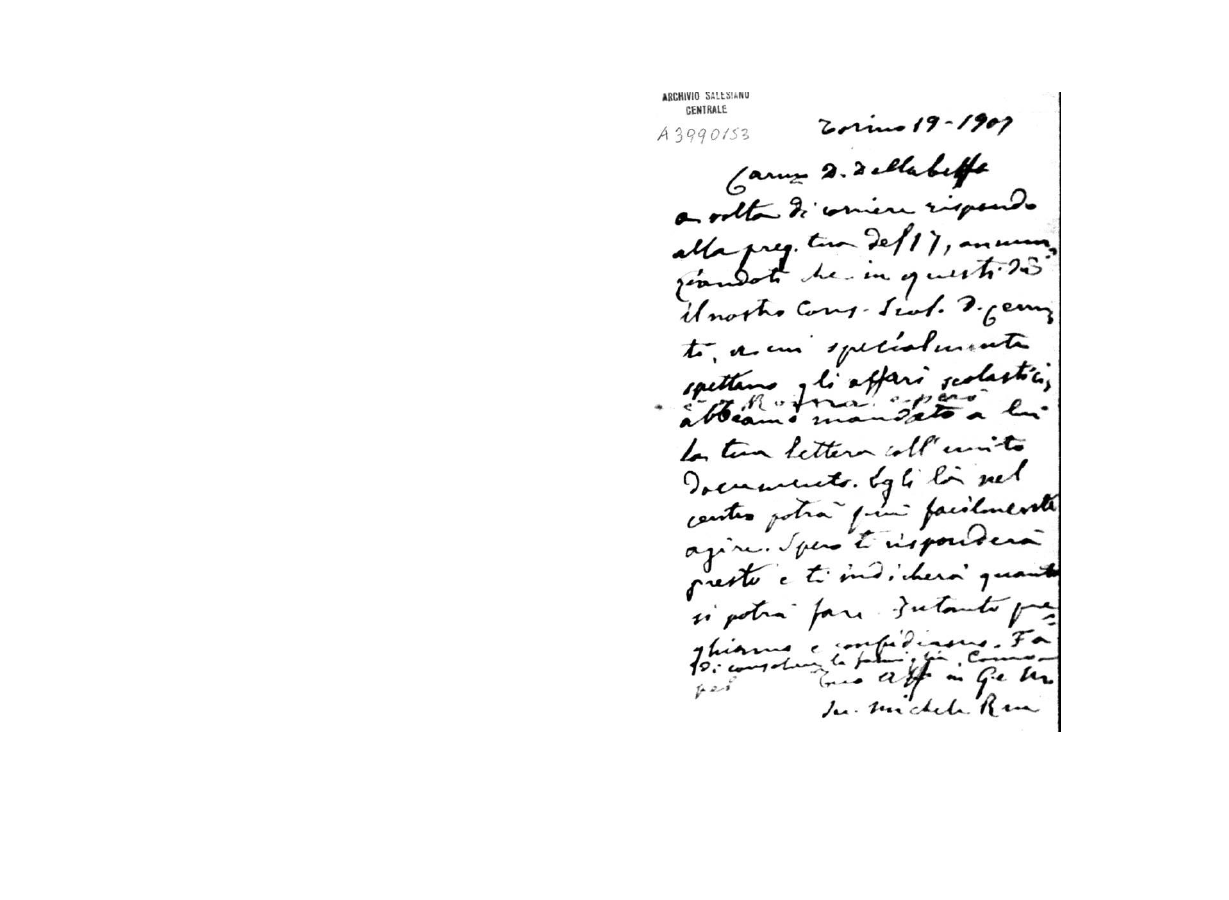 ARCHIVIO SALESIANO
CENTRALE
A3990153
Torino 19-1907
Carmo D. Dellabeffa
a volta di corriere rispondo
alla preg. tua del 17, annun,
ziandoti che in questi dì
il nostro Cons. Scol. D. Cerru,
ti, a cui specialmente
spettano gli affari scolastici,
è a Roma e però
abbiamo mandato a lui
la tua lettera coll'unito
documento. Egli là nel
centro potrà più facilmente
agire. Spero ti risponderà
presto e ti indicherà quanto
si potrà fare. Intanto pre=
ghiamo e confidiamo. Fa
di consolare la famiglia.
Tuo aff in G. e M.
Sac. Michele Rua